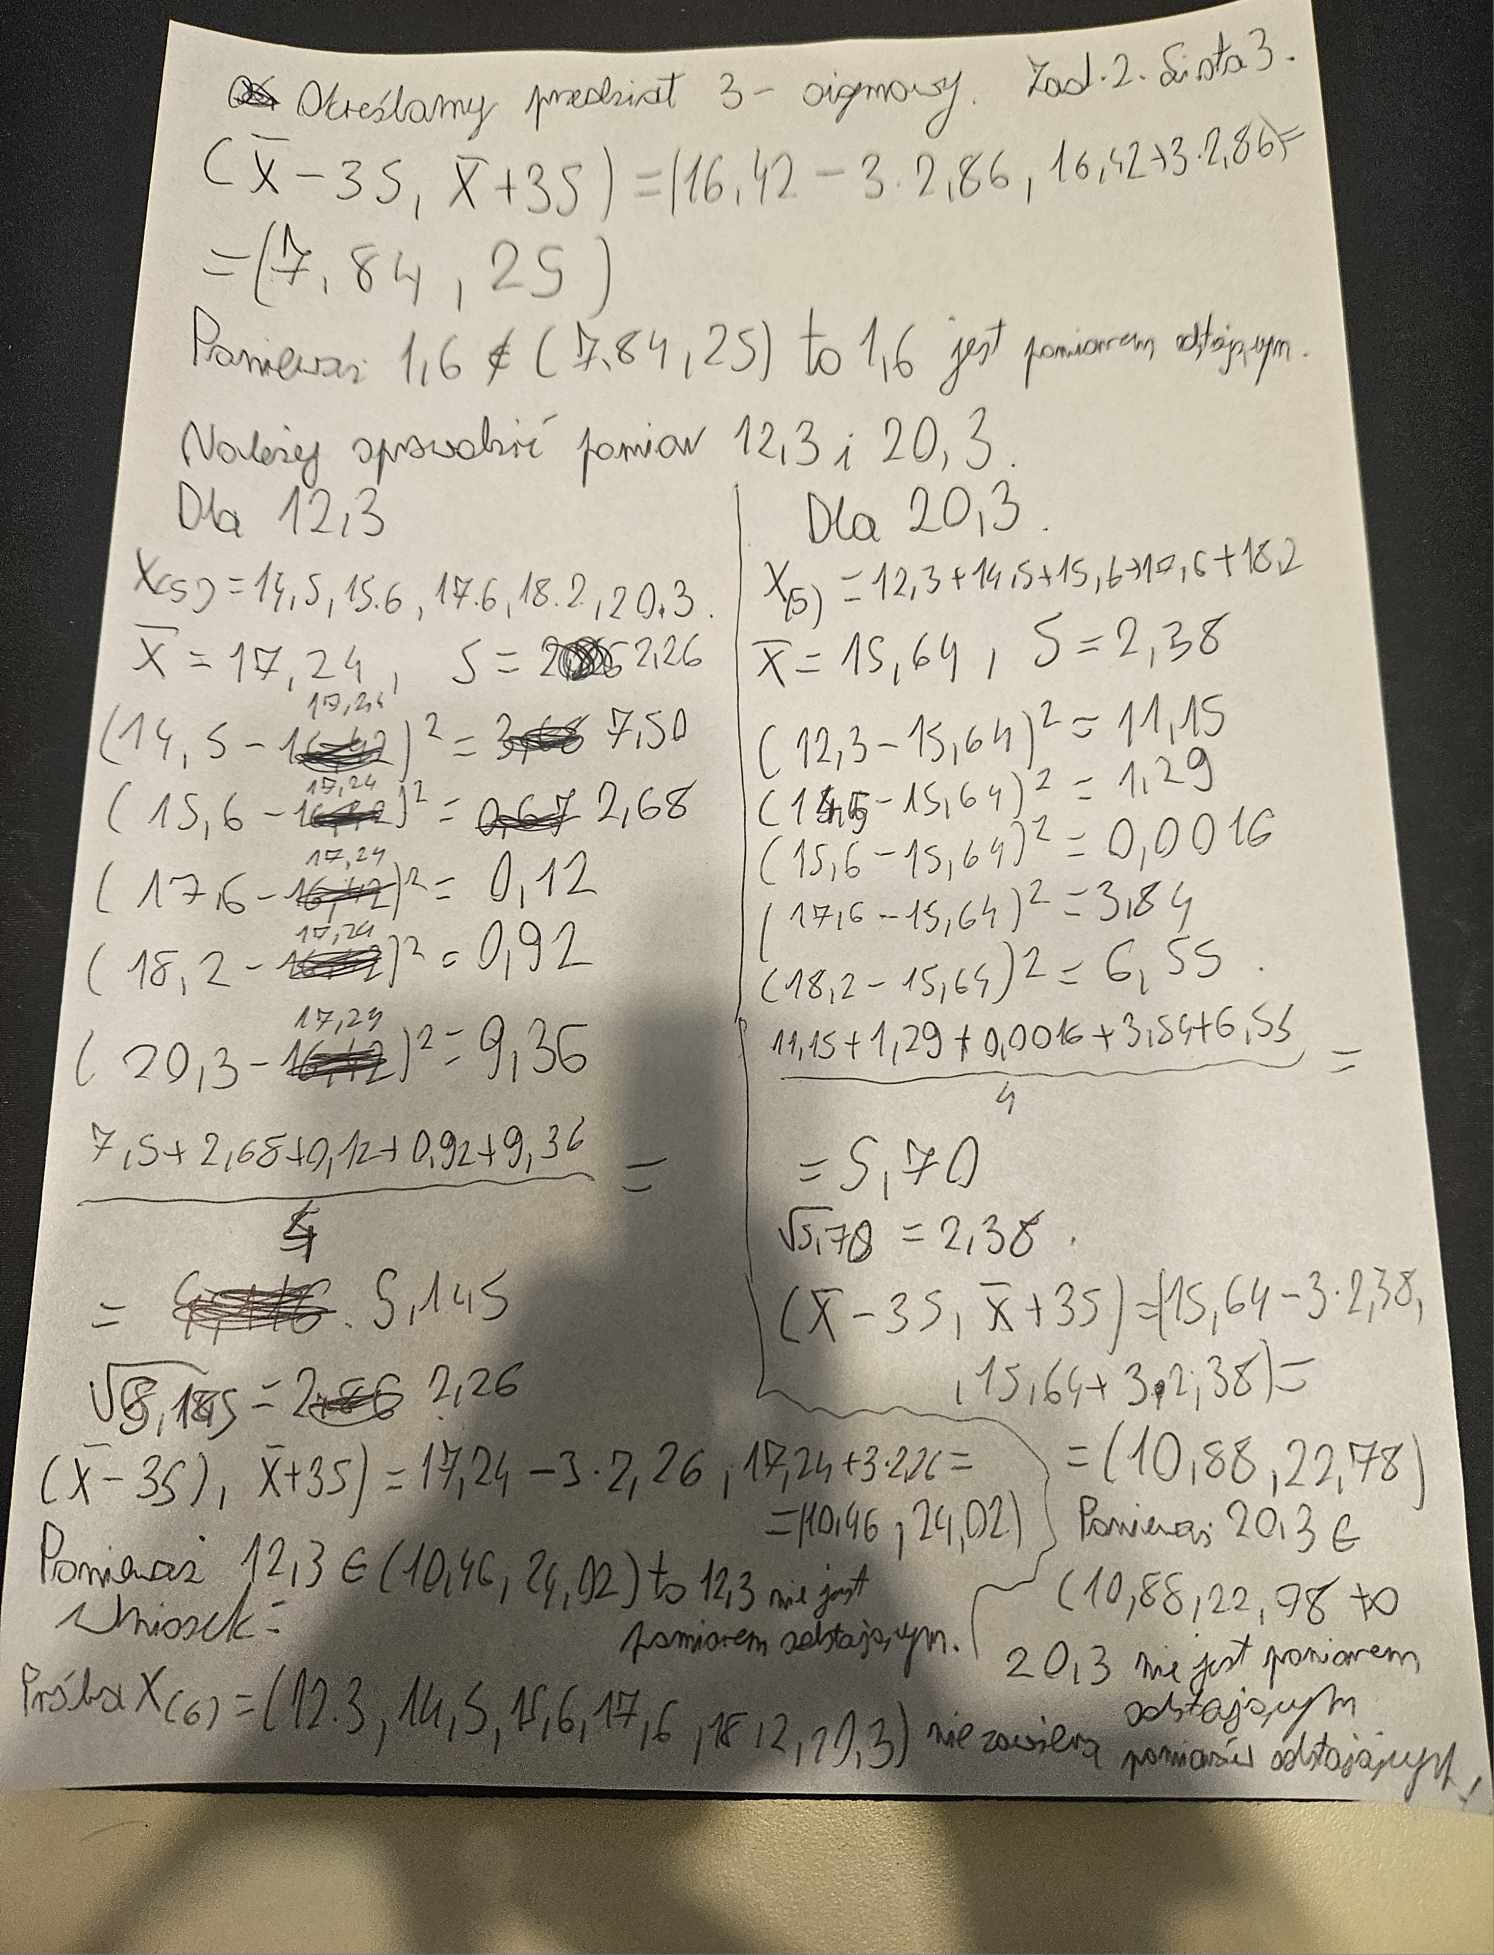 Określamy przedział 3-sigmowy. Zad.2. Lista 3.
(x̄ - 3S, x̄ + 3S) = (16,42 - 3·2,86, 16,42+3·2,86)=
=(7,84, 25)
Ponieważ 1,6 ∉ (7,84, 25) to 1,6 jest pomiarem odstającym.
Należy sprawdzić pomiar 12,3 i 20,3.
Dla 12,3
X(5) = 14,5, 15.6, 17.6, 18.2, 20.3.
x̄ = 17,24, S = 2,26
(14,5 - 17,24)² = 7,50
(15,6 - 17,24)² = 2,68
(17,6 - 17,24)² = 0,12
(18,2 - 17,24)² = 0,92
(20,3 - 17,24)² = 9,36
7,5 + 2,68+0,12+0,92+9,36 =
4
= 5,145
√5,145 = 2,26
(x̄ - 3S), x̄+3S) = 17,24 - 3·2,26, 17,24+3·2,26 =
=(10,46, 24,02)
Ponieważ 12,3 ∈ (10,46, 24,02) to 12,3 nie jest
pomiarem odstającym.
Dla 20,3.
X(5) = 12,3+14,5+15,6+17,6+18,2
x̄ = 15,64, S = 2,38
(12,3 - 15,64)² = 11,15
(14,5 - 15,64)² = 1,29
(15,6 - 15,64)² = 0,0016
(17,6 - 15,64)² = 3,84
(18,2 - 15,64)² = 6,55.
11,15+1,29+0,0016+3,84+6,55 =
4
= 5,70
√5,70 = 2,38.
(x̄ - 3S, x̄ + 3S) = (15,64 - 3·2,38,
, 15,64+3·2,38)=
= (10,88, 22,78)
Ponieważ 20,3 ∈
(10,88, 22,98 to
20,3 nie jest pomiarem
odstającym
Wniosek:
Próba X(6) = (12.3, 14,5, 15,6, 17,6, 18,2, 20,3) nie zawiera pomiarów odstających!